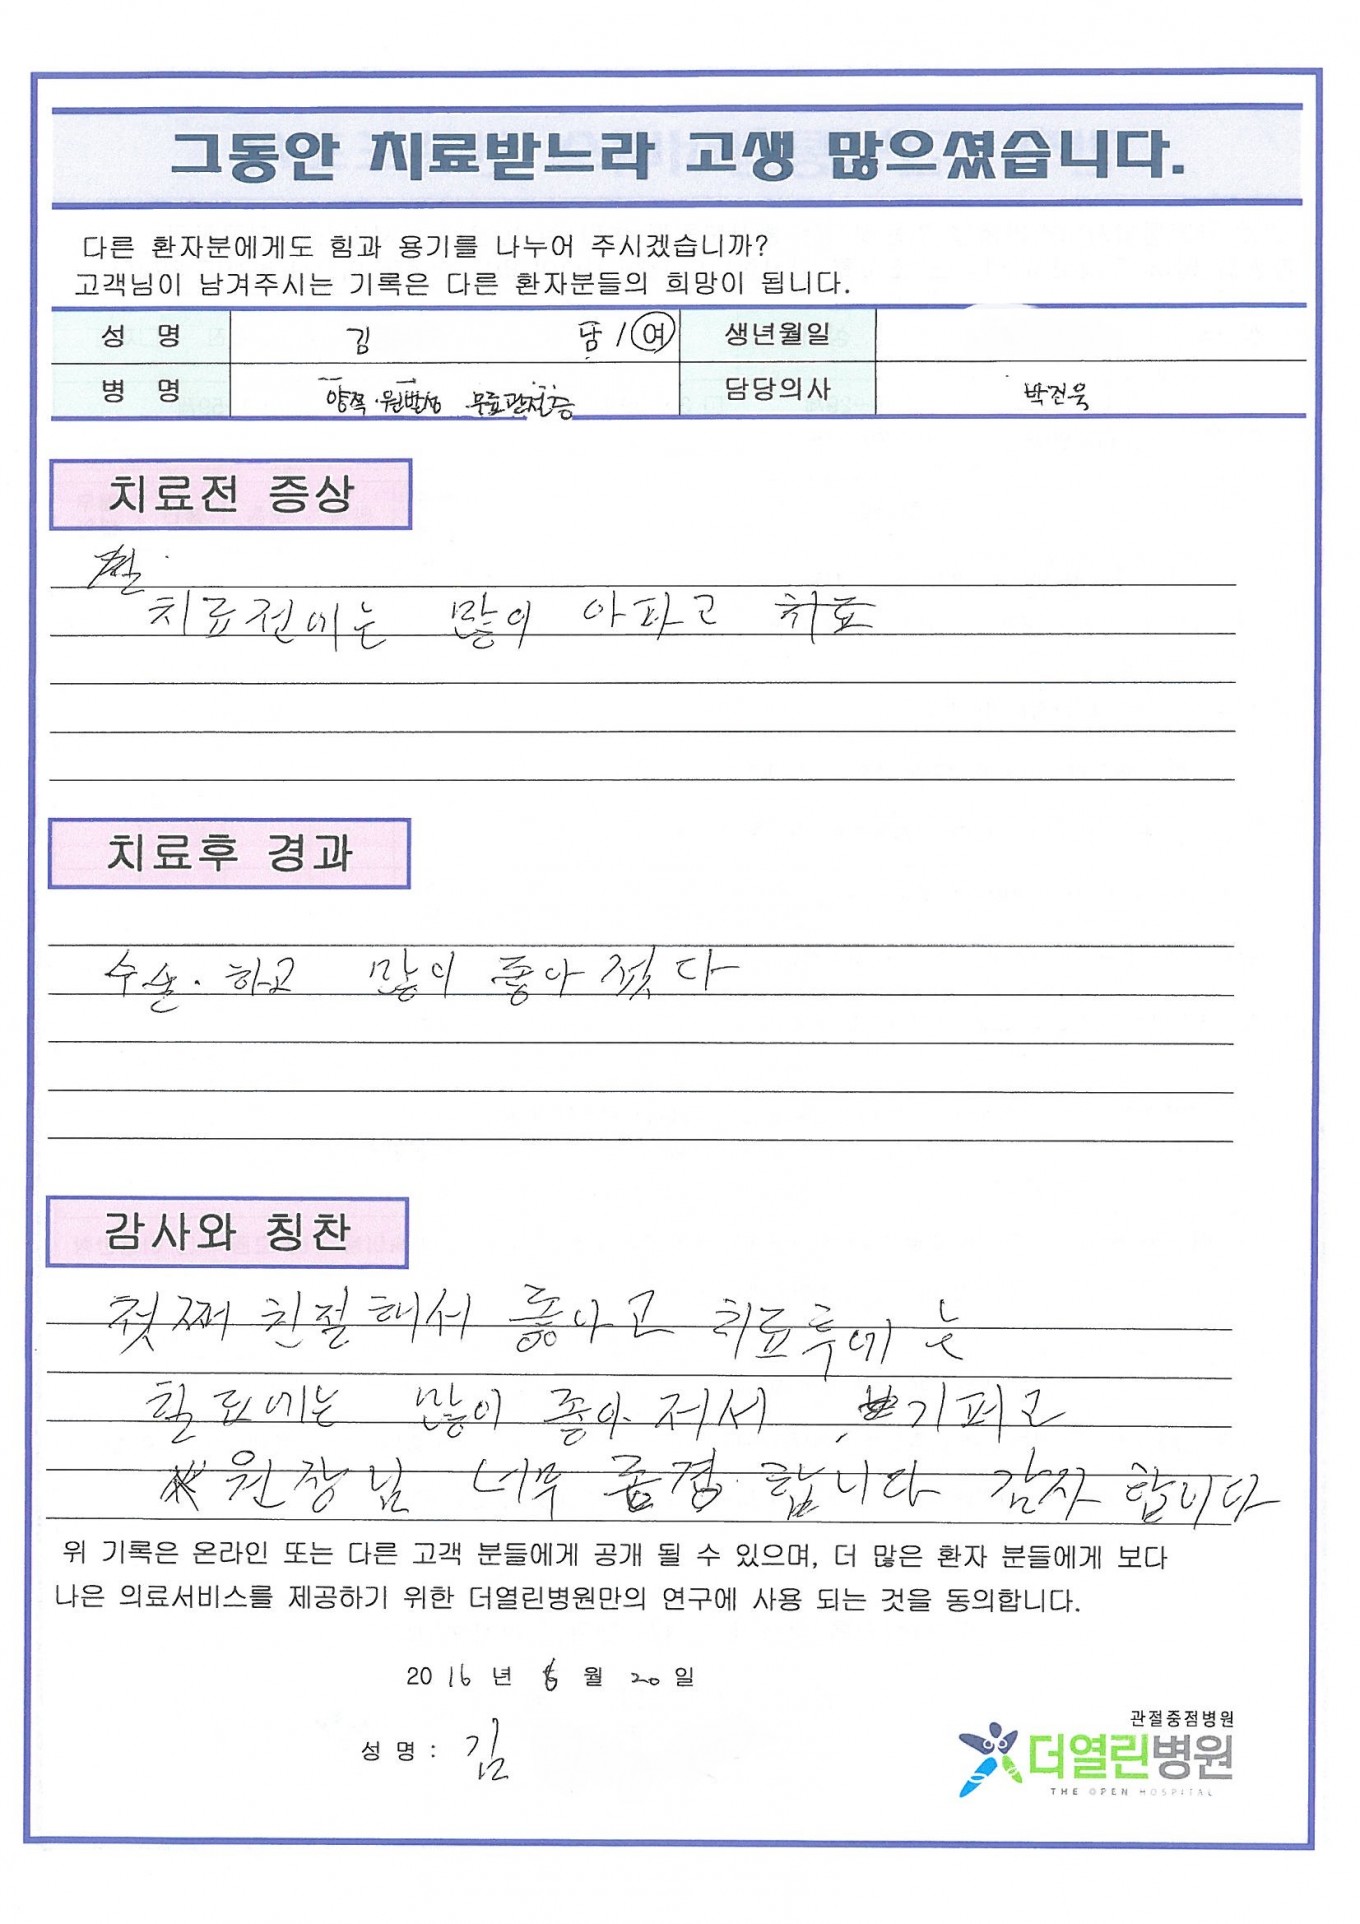 그동안 치료받느라 고생 많으셨습니다.
다른 환자분에게도 힘과 용기를 나누어 주시겠습니까?
고객님이 남겨주시는 기록은 다른 환자분들의 희망이 됩니다.
성 명 김 남 / 여 생년월일
병 명 양쪽·원발성 무릎관절증 담당의사 박진욱
치료전 증상
치료전에는 많이 아파고 치료
치료후 경과
수술. 하고 많이 좋아 젔다
감사와 칭찬
첫째 친절해서 좋아고 치료후에는
많이 좋아저서 기퍼고
원장님 너무 존경 합니다 감사 합니다
위 기록은 온라인 또는 다른 고객 분들에게 공개 될 수 있으며, 더 많은 환자 분들에게 보다
나은 의료서비스를 제공하기 위한 더열린병원만의 연구에 사용 되는 것을 동의합니다.
2016 년 6 월 20 일
성 명 : 김
관절중점병원
더열린병원
THE OPEN HOSPITAL